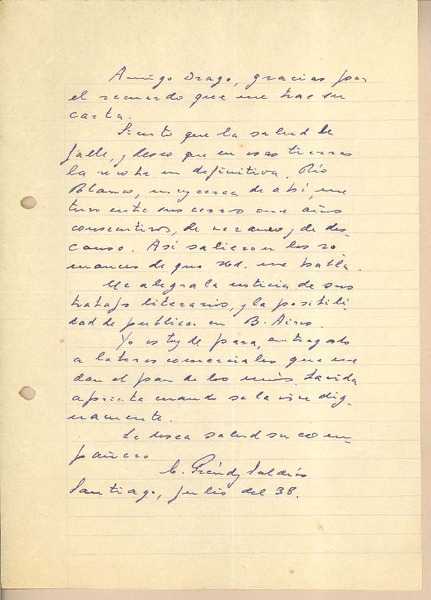 Amigo Drago, gracias por
el recuerdo que me trae su
carta.
Siento que la salud le
falle, y deseo que en esas tierras
la recobre en definitiva. Río
Blanco, muy cerca de ahí, me
tuvo entre sus cerros once años
consecutivos, de veraneo, de des-
canso. Así salieron los ro-
mances de que Ud. me habla.
Me alegra la noticia de sus
trabajos literarios, y la posibili-
dad de publicar en B. Aires.
Yo estoy de para, entregado
a labores comerciales que me
dan el pan de los míos. La vida
aprieta cuando se la vive dig-
namente.
Le desea salud su com-
pañero
C. Préndez Saldías
Santiago, julio del 38.